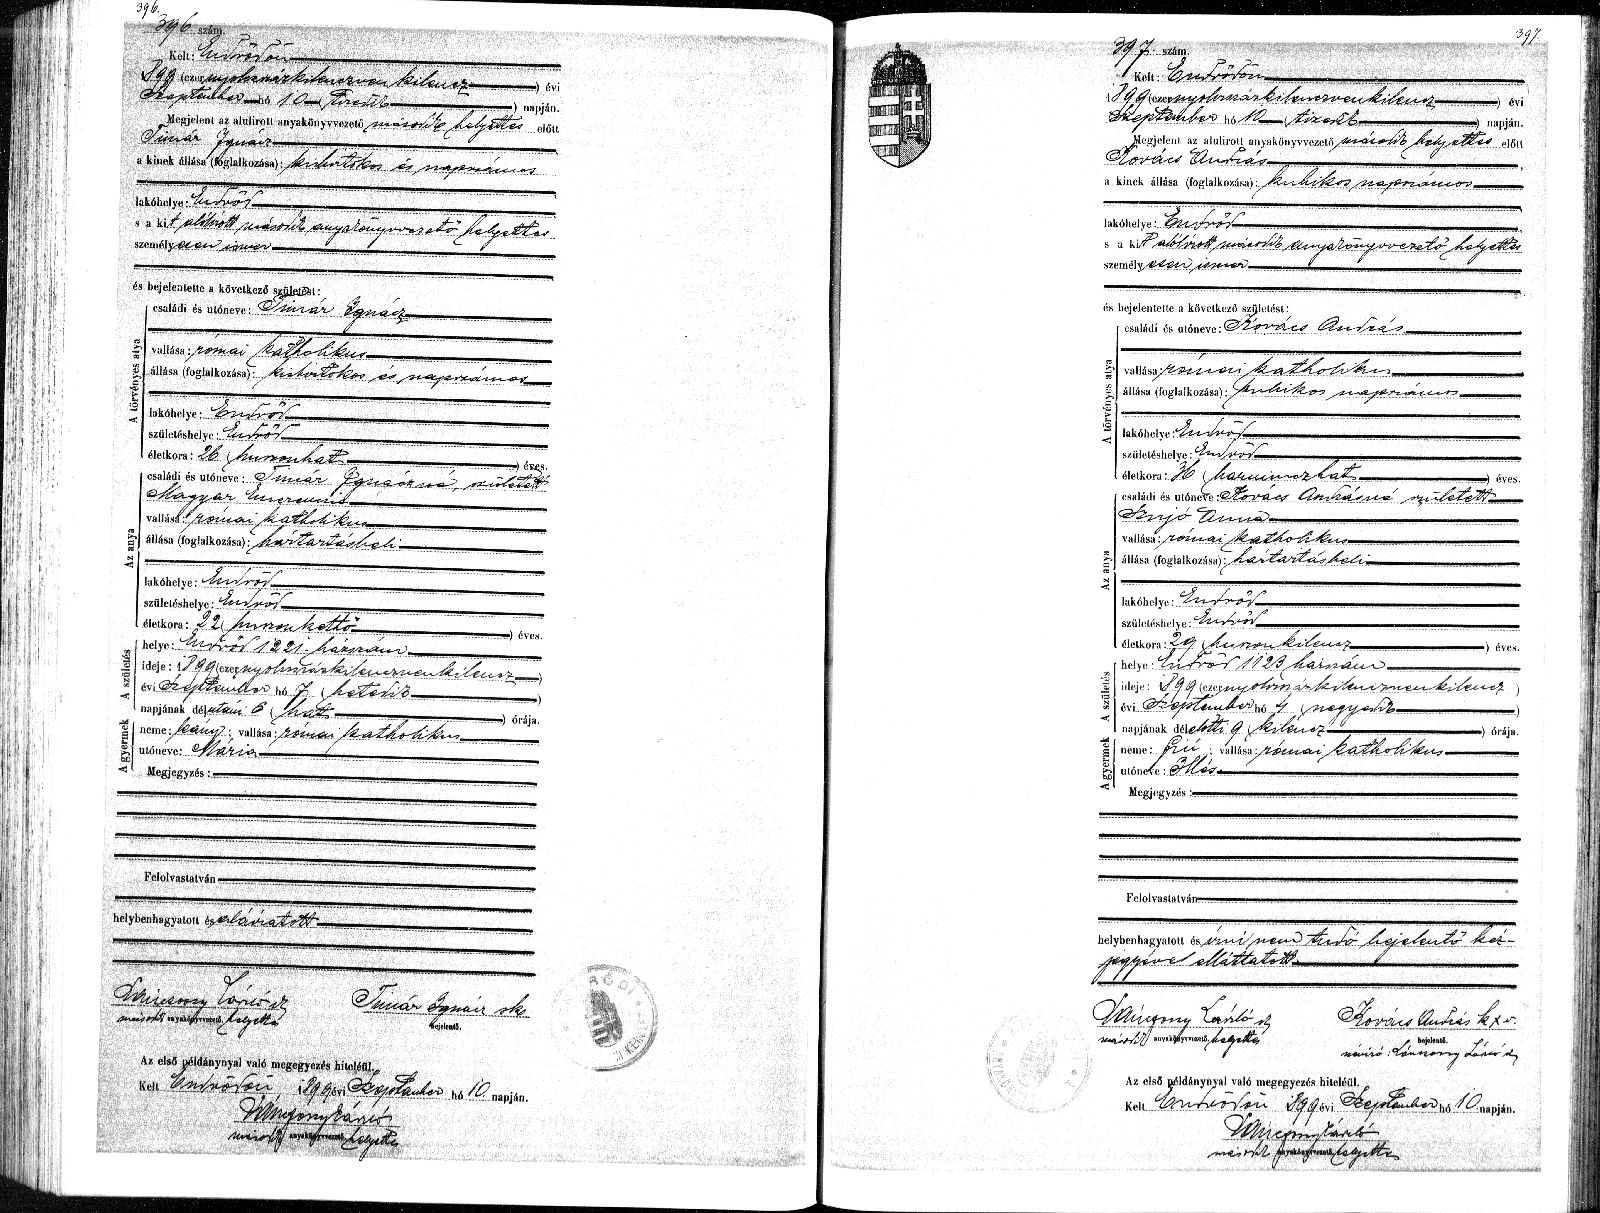 396.
396 szám.
Kelt: Endrődön
1899 (ezernyolcszázkilenczvenkilencz) évi
Szeptember hó 10 (tizedik) napján.
Megjelent az alulirott anyakönyvvezető második helyettes előtt
Timár Ignácz
a kinek állása (foglalkozása): kisbirtokos és napszámos
lakóhelye: Endrőd
s a kit alólirott második anyakönyvvezető helyettes
személyesen ismer
és bejelentette a következő születést:
A törvényes atya
családi és utóneve: Timár Ignácz
vallása: római katholikus
állása (foglalkozása): kisbirtokos és napszámos
lakóhelye: Endrőd
születéshelye: Endrőd
életkora: 26 (huszonhat) éves.
Az anya
családi és utóneve: Timár Ignáczné, született
Magyar Emerenczia
vallása: római katholikus
állása (foglalkozása): háztartásbeli
lakóhelye: Endrőd
születéshelye: Endrőd
életkora: 22 (huszonkettő) éves.
A születés
helye: Endrőd 1221. házszám
ideje: 1899 (ezernyolcszázkilenczvenkilencz)
évi Szeptember hó 7 (hetedik)
napjának délutáni 6 (hat) órája.
A gyermek
neme: leány; vallása: római katholikus
utóneve: Mária
Megjegyzés:
Felolvastatván
helybenhagyatott és aláiratott
László
második anyakönyvvezető helyettes
Timár Ignácz sk
bejelentő.
Az első példánynyal való megegyezés hiteléül.
Kelt Endrődön 1899 évi Szeptember hó 10 napján.
László
második anyakönyvvezető helyettes
397
397. szám.
Kelt: Endrődön
1899 (ezernyolcszázkilenczvenkilencz) évi
Szeptember hó 10 (tizedik) napján.
Megjelent az alulirott anyakönyvvezető második helyettes előtt
Kovács András
a kinek állása (foglalkozása): kubikos napszámos
lakóhelye: Endrőd
s a kit alólirott második anyakönyvvezető helyettes
személyesen ismer
és bejelentette a következő születést:
A törvényes atya
családi és utóneve: Kovács András
vallása: római katholikus
állása (foglalkozása): kubikos napszámos
lakóhelye: Endrőd
születéshelye: Endrőd
életkora: 36 (harminczhat) éves.
Az anya
családi és utóneve: Kovács Andrásné született
Szujó Anna
vallása: római katholikus
állása (foglalkozása): háztartásbeli
lakóhelye: Endrőd
születéshelye: Endrőd
életkora: 29 (huszonkilencz) éves.
A születés
helye: Endrőd 1123 házszám
ideje: 1899 (ezernyolcszázkilenczvenkilencz)
évi Szeptember hó 4 (negyedik)
napjának délelőtti 9 (kilencz) órája.
A gyermek
neme: fiú; vallása: római katholikus
utóneve: Illés
Megjegyzés:
Felolvastatván
helybenhagyatott és irni nem tudó bejelentő kéz-
jegyével elláttatott
László
második anyakönyvvezető helyettes
Kovács András k x v.
bejelentő.
névíró: László
Az első példánynyal való megegyezés hiteléül.
Kelt Endrődön 1899 évi Szeptember hó 10 napján.
László
második anyakönyvvezető helyettes